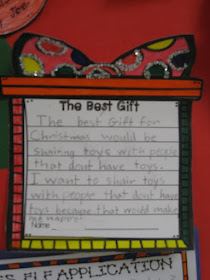 The Best Gift
The best Gift for
Christmas would be
shairing toys with people
that dont have toys.
I want to shair toys
with people that dont have
toys because that would make
me happy.
Name
ELF APPLICATION